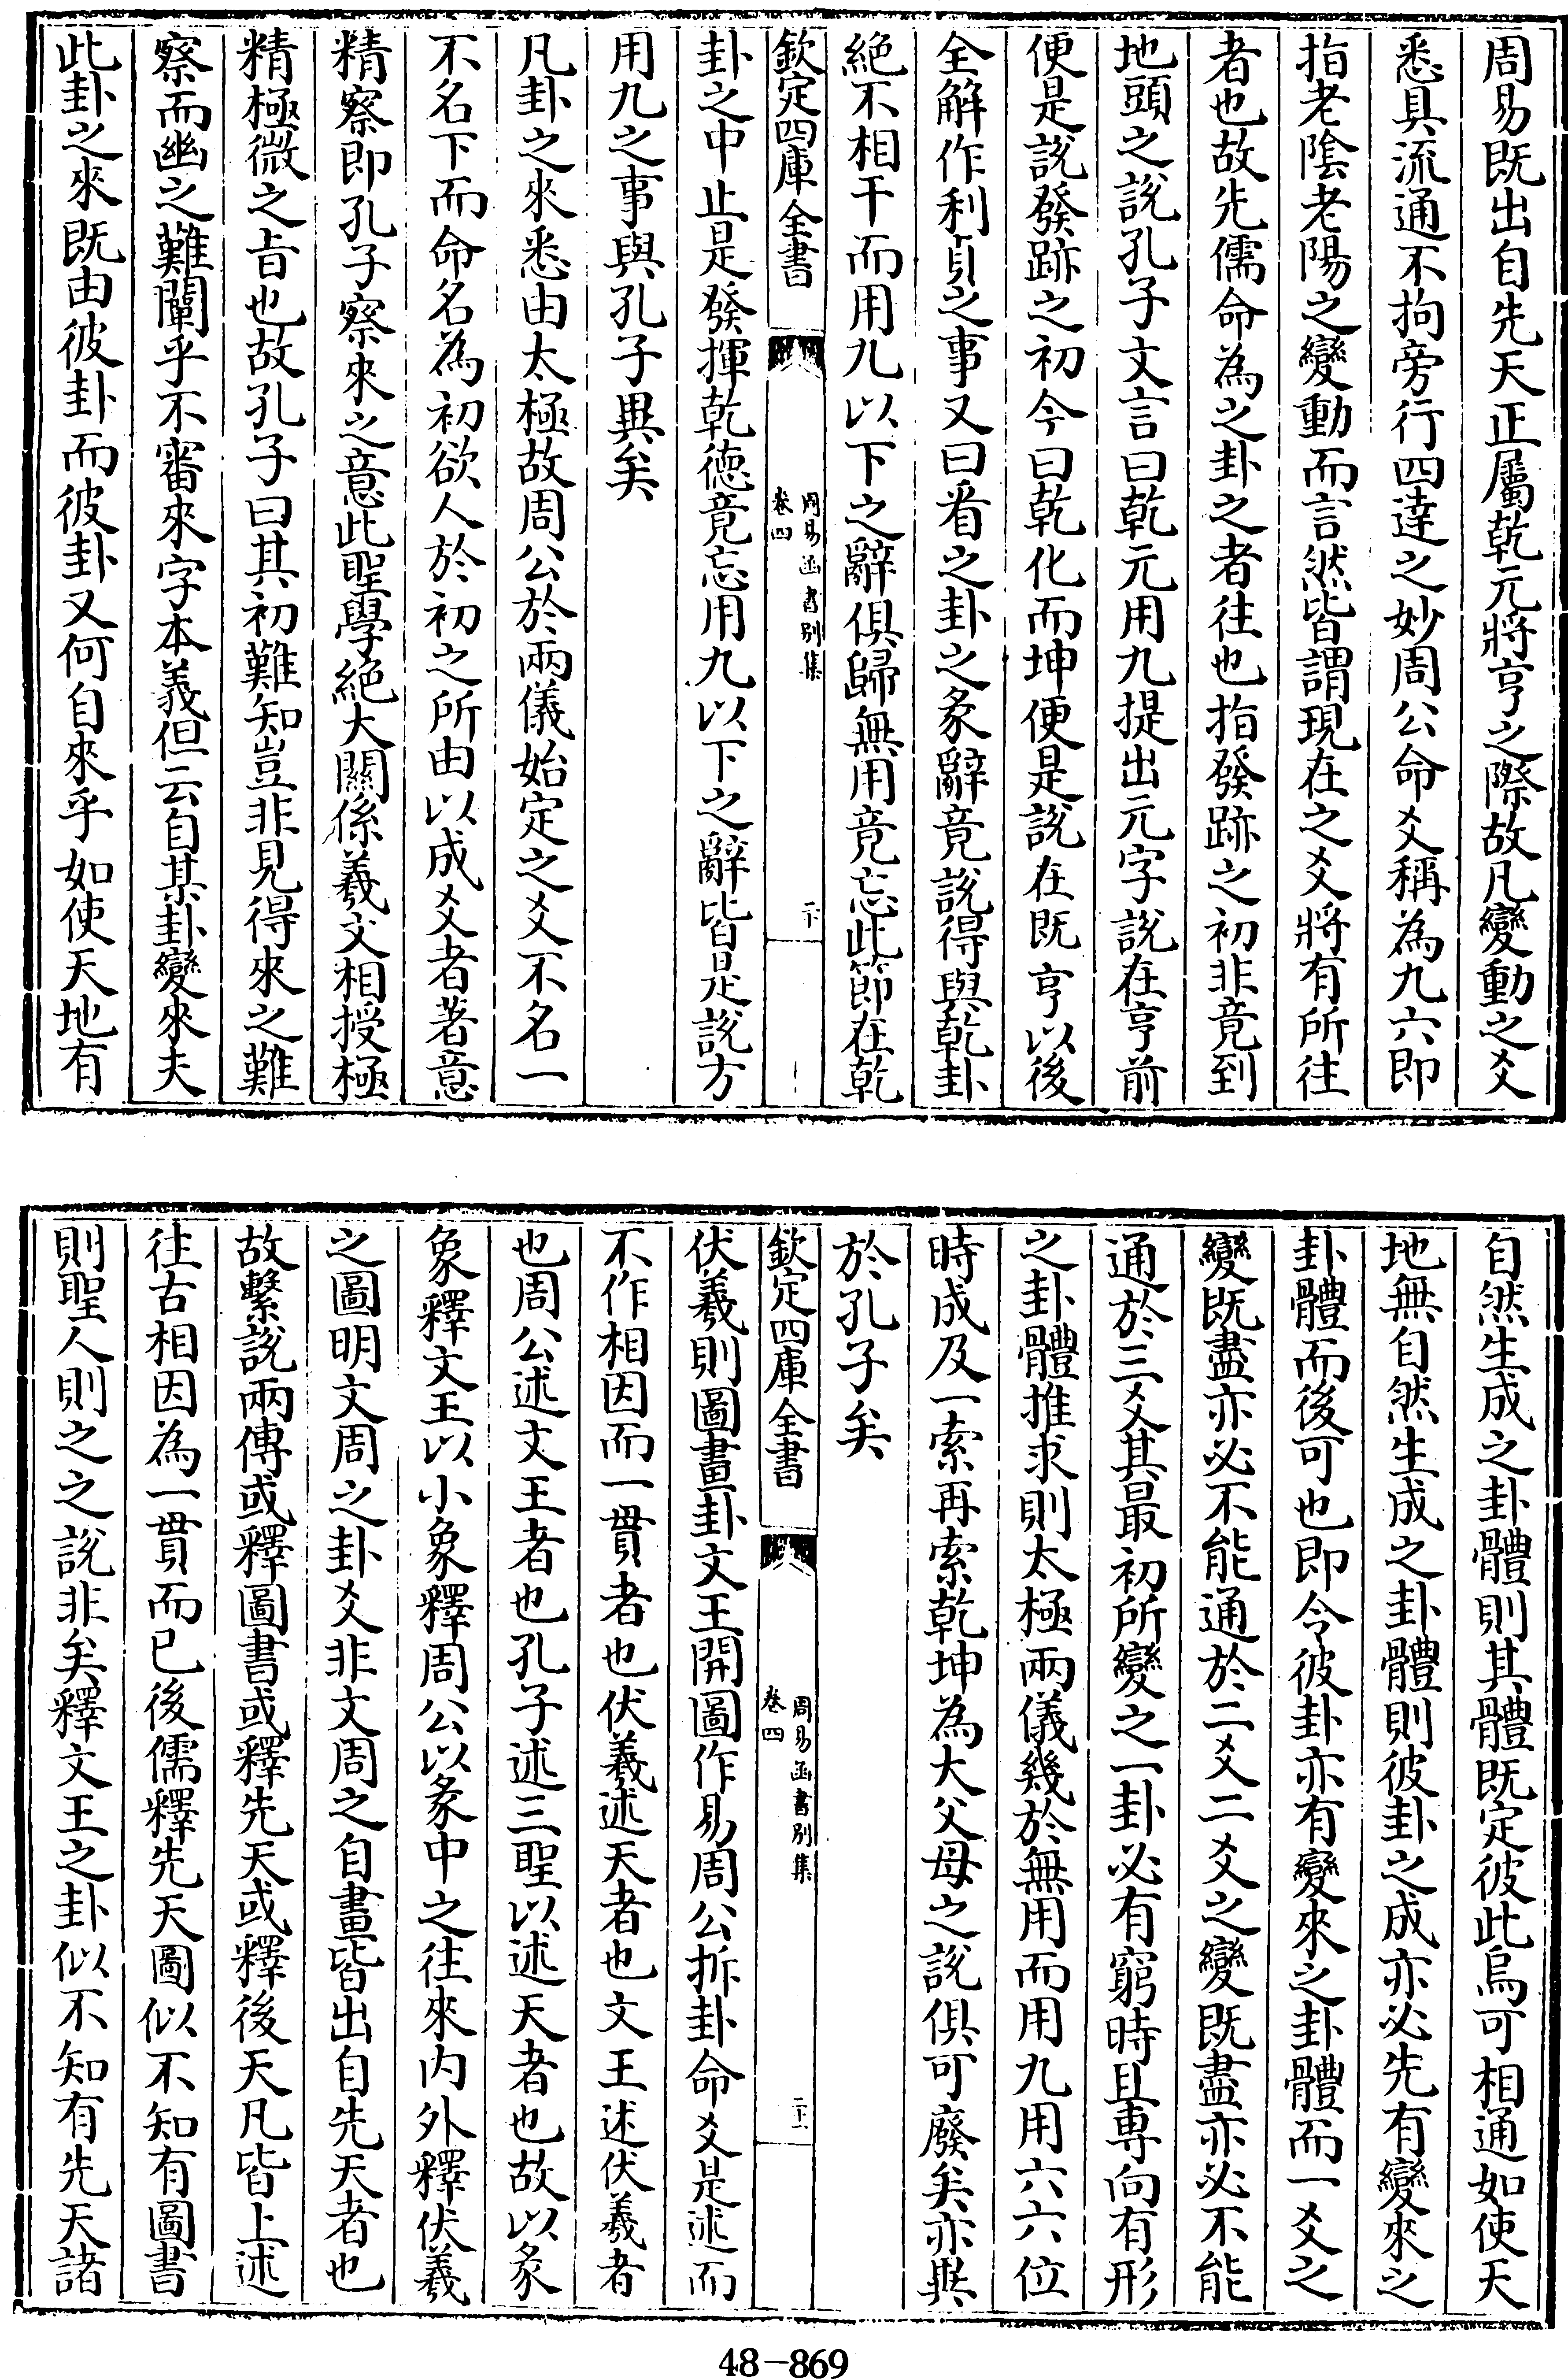 周易既出自先天正屬乾元將亨之際故凡變動之爻
悉具流通不拘旁行四達之妙周公命爻稱為九六即
指老隂老陽之變動而言然皆謂現在之爻將有所往
者也故先儒命為之卦之者往也指發跡之初非竟到
地頭之說孔子文言曰乾元用九提出元字說在亨前
便是說發跡之初今曰乾化而坤便是說在既亨以後
全解作利貞之事又曰看之卦之彖辭竟說得與乾卦
絕不相干而用九以下之辭俱歸無用竟忘此節在乾
欽定四庫全書
周易函書别集
卷四
二十
卦之中止是發揮乾德竟忘用九以下之辭皆是說方
用九之事與孔子異矣
凡卦之來悉由太極故周公於兩儀始定之爻不名一
不名下而命名為初欲人於初之所由以成爻者著意
精察即孔子察來之意此聖學絕大關係羲文相授極
精極微之㫖也故孔子曰其初難知豈非見得來之難
察而幽之難闡乎不審來字本義但云自某卦變來夫
此卦之來既由彼卦而彼卦又何自來乎如使天地有
自然生成之卦體則其體既定彼此烏可相通如使天
地無自然生成之卦體則彼卦之成亦必先有變來之
卦體而後可也即令彼卦亦有變來之卦體而一爻之
變既盡亦必不能通於二爻二爻之變既盡亦必不能
通於三爻其最初所變之一卦必有窮時且専向有形
之卦體推求則太極兩儀幾於無用而用九用六六位
時成及一索再索乾坤為大父母之說俱可廢矣亦異
於孔子矣
欽定四庫全書
周易函書别集
卷四
二十一
伏羲則圖畫卦文王開圖作易周公拆卦命爻是述而
不作相因而一貫者也伏羲述天者也文王述伏羲者
也周公述文王者也孔子述三聖以述天者也故以彖
象釋文王以小象釋周公以彖中之往來内外釋伏羲
之圖明文周之卦爻非文周之自畫皆出自先天者也
故繫說兩傳或釋圖書或釋先天或釋後天凡皆上述
往古相因為一貫而已後儒釋先天圖似不知有圖書
則聖人則之之說非矣釋文王之卦似不知有先天諸
48-869